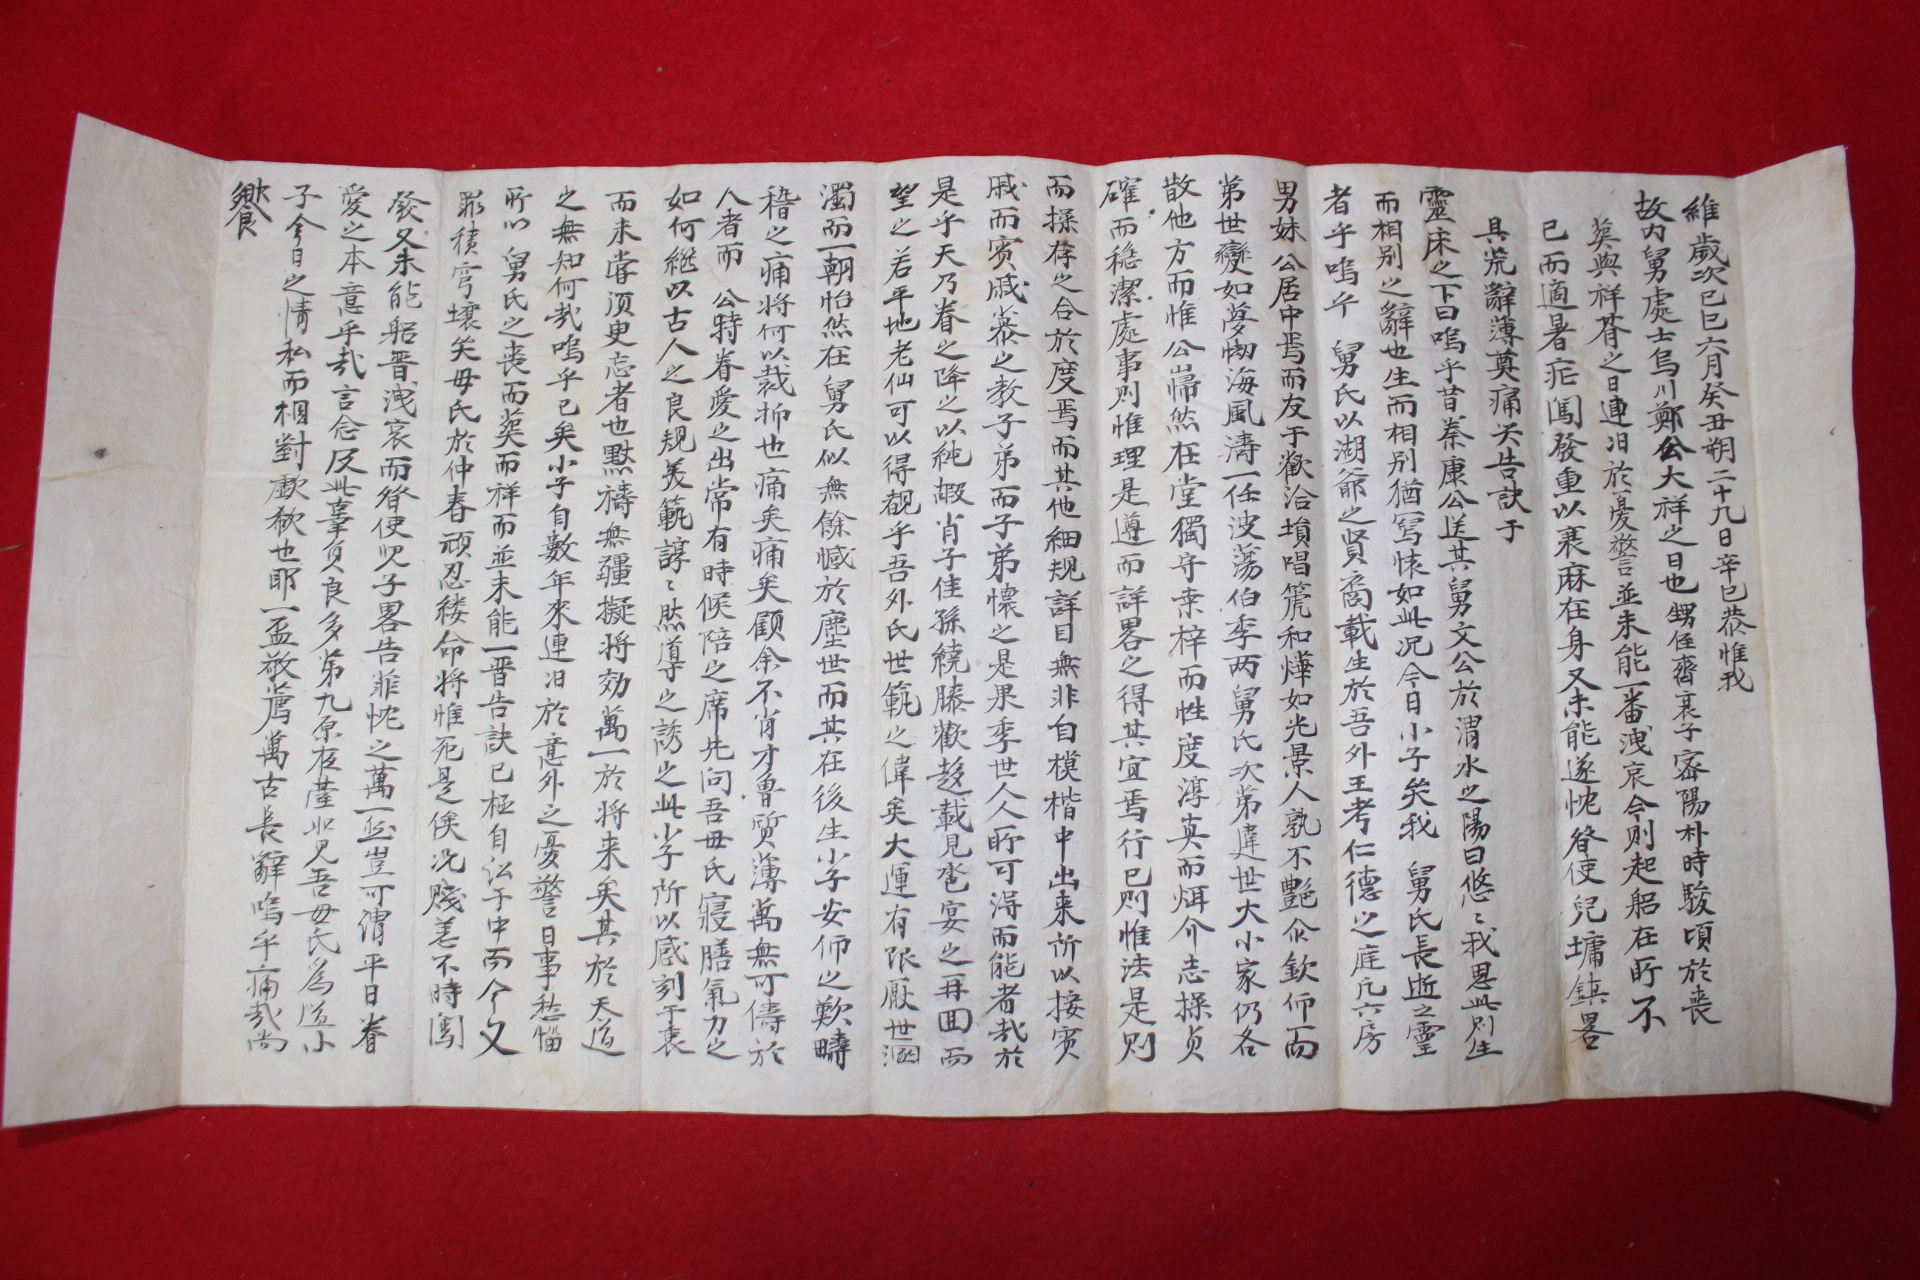 維歲次己巳六月癸丑朔二十九日辛巳恭惟我
故內舅處士烏川鄭公大祥之日也甥侄齊衰子密陽朴時駿頃於喪
葬與祥朞之日連汨於憂警並未能一番洩哀今則起躬在所不
已而適暑症闖發重以衰麻在身又未能遂忱替使兒墉鎮畧
具荒辭薄奠痛哭告訣于
靈床之下曰嗚乎昔秦康公送其舅文公於渭水之陽曰悠〻我思此則生
而相別之辭也生而相別猶寫懷如此況今日小子矣我 舅氏長逝之靈
者乎嗚乎 舅氏以湖爺之賢裔載生於吾外王考仁德之庭凡六房
男妹公居中焉而友于歡洽塤唱篪和燁如光景人孰不艷企欽仰而
第世變如夢刼海風濤一任波蕩伯季两舅氏次第違世大小家仍各
散他方而惟公巋然在堂獨守桒梓而性度淳真而烱介志操貞
確而穩潔處事則惟理是遵而詳畧之得其宜焉行已則惟法是則
而操存之合於度焉而其他細規詳目無非自模楷中出来所以接賓
戚而賓戚慕之教子弟而子弟懷之是果季世人人所可淂而能者哉於
是乎天乃眷之降之以純嘏肖子佳孫繞膝歡趍載見巹宴之再囬而
望之若平地老仙可以得覩乎吾外氏世範之偉矣大運有限厭世溷
濁而一朝怡然在舅氏似無餘憾於塵世而其在後生小子安仰之歎疇
稽之痛将何以裁抑也痛矣痛矣顧余不肖才魯質薄萬無可儔於
人者而 公特眷愛之出常有時候陪之席先问吾毋氏寢膳氣力之
如何継以古人之良規美範諄〻然導之誘之此小子所以感刻于衷
而未嘗須臾忘者也黙禱無疆擬将効萬一於将来矣其於天道
之無知何哉嗚乎已矣小子自數年來連汨於意外之憂警日事愁惱
所以 舅氏之喪而葬而祥而並未能一晋告訣已極自訟于中而今又
罪積穹壤矣毋氏於仲春頑忍縷命将惟死是俟況賤恙不時闖
發又未能躬晋洩哀而替使児子畧告菲忱之萬一然豈可謂平日眷
愛之本意乎哉言念及此辜負良多第九原夜臺如見吾毋氏為噵小
子今日之情私而相對歔欷也耶一盃敬薦萬古長辭嗚乎痛哉尚
饗